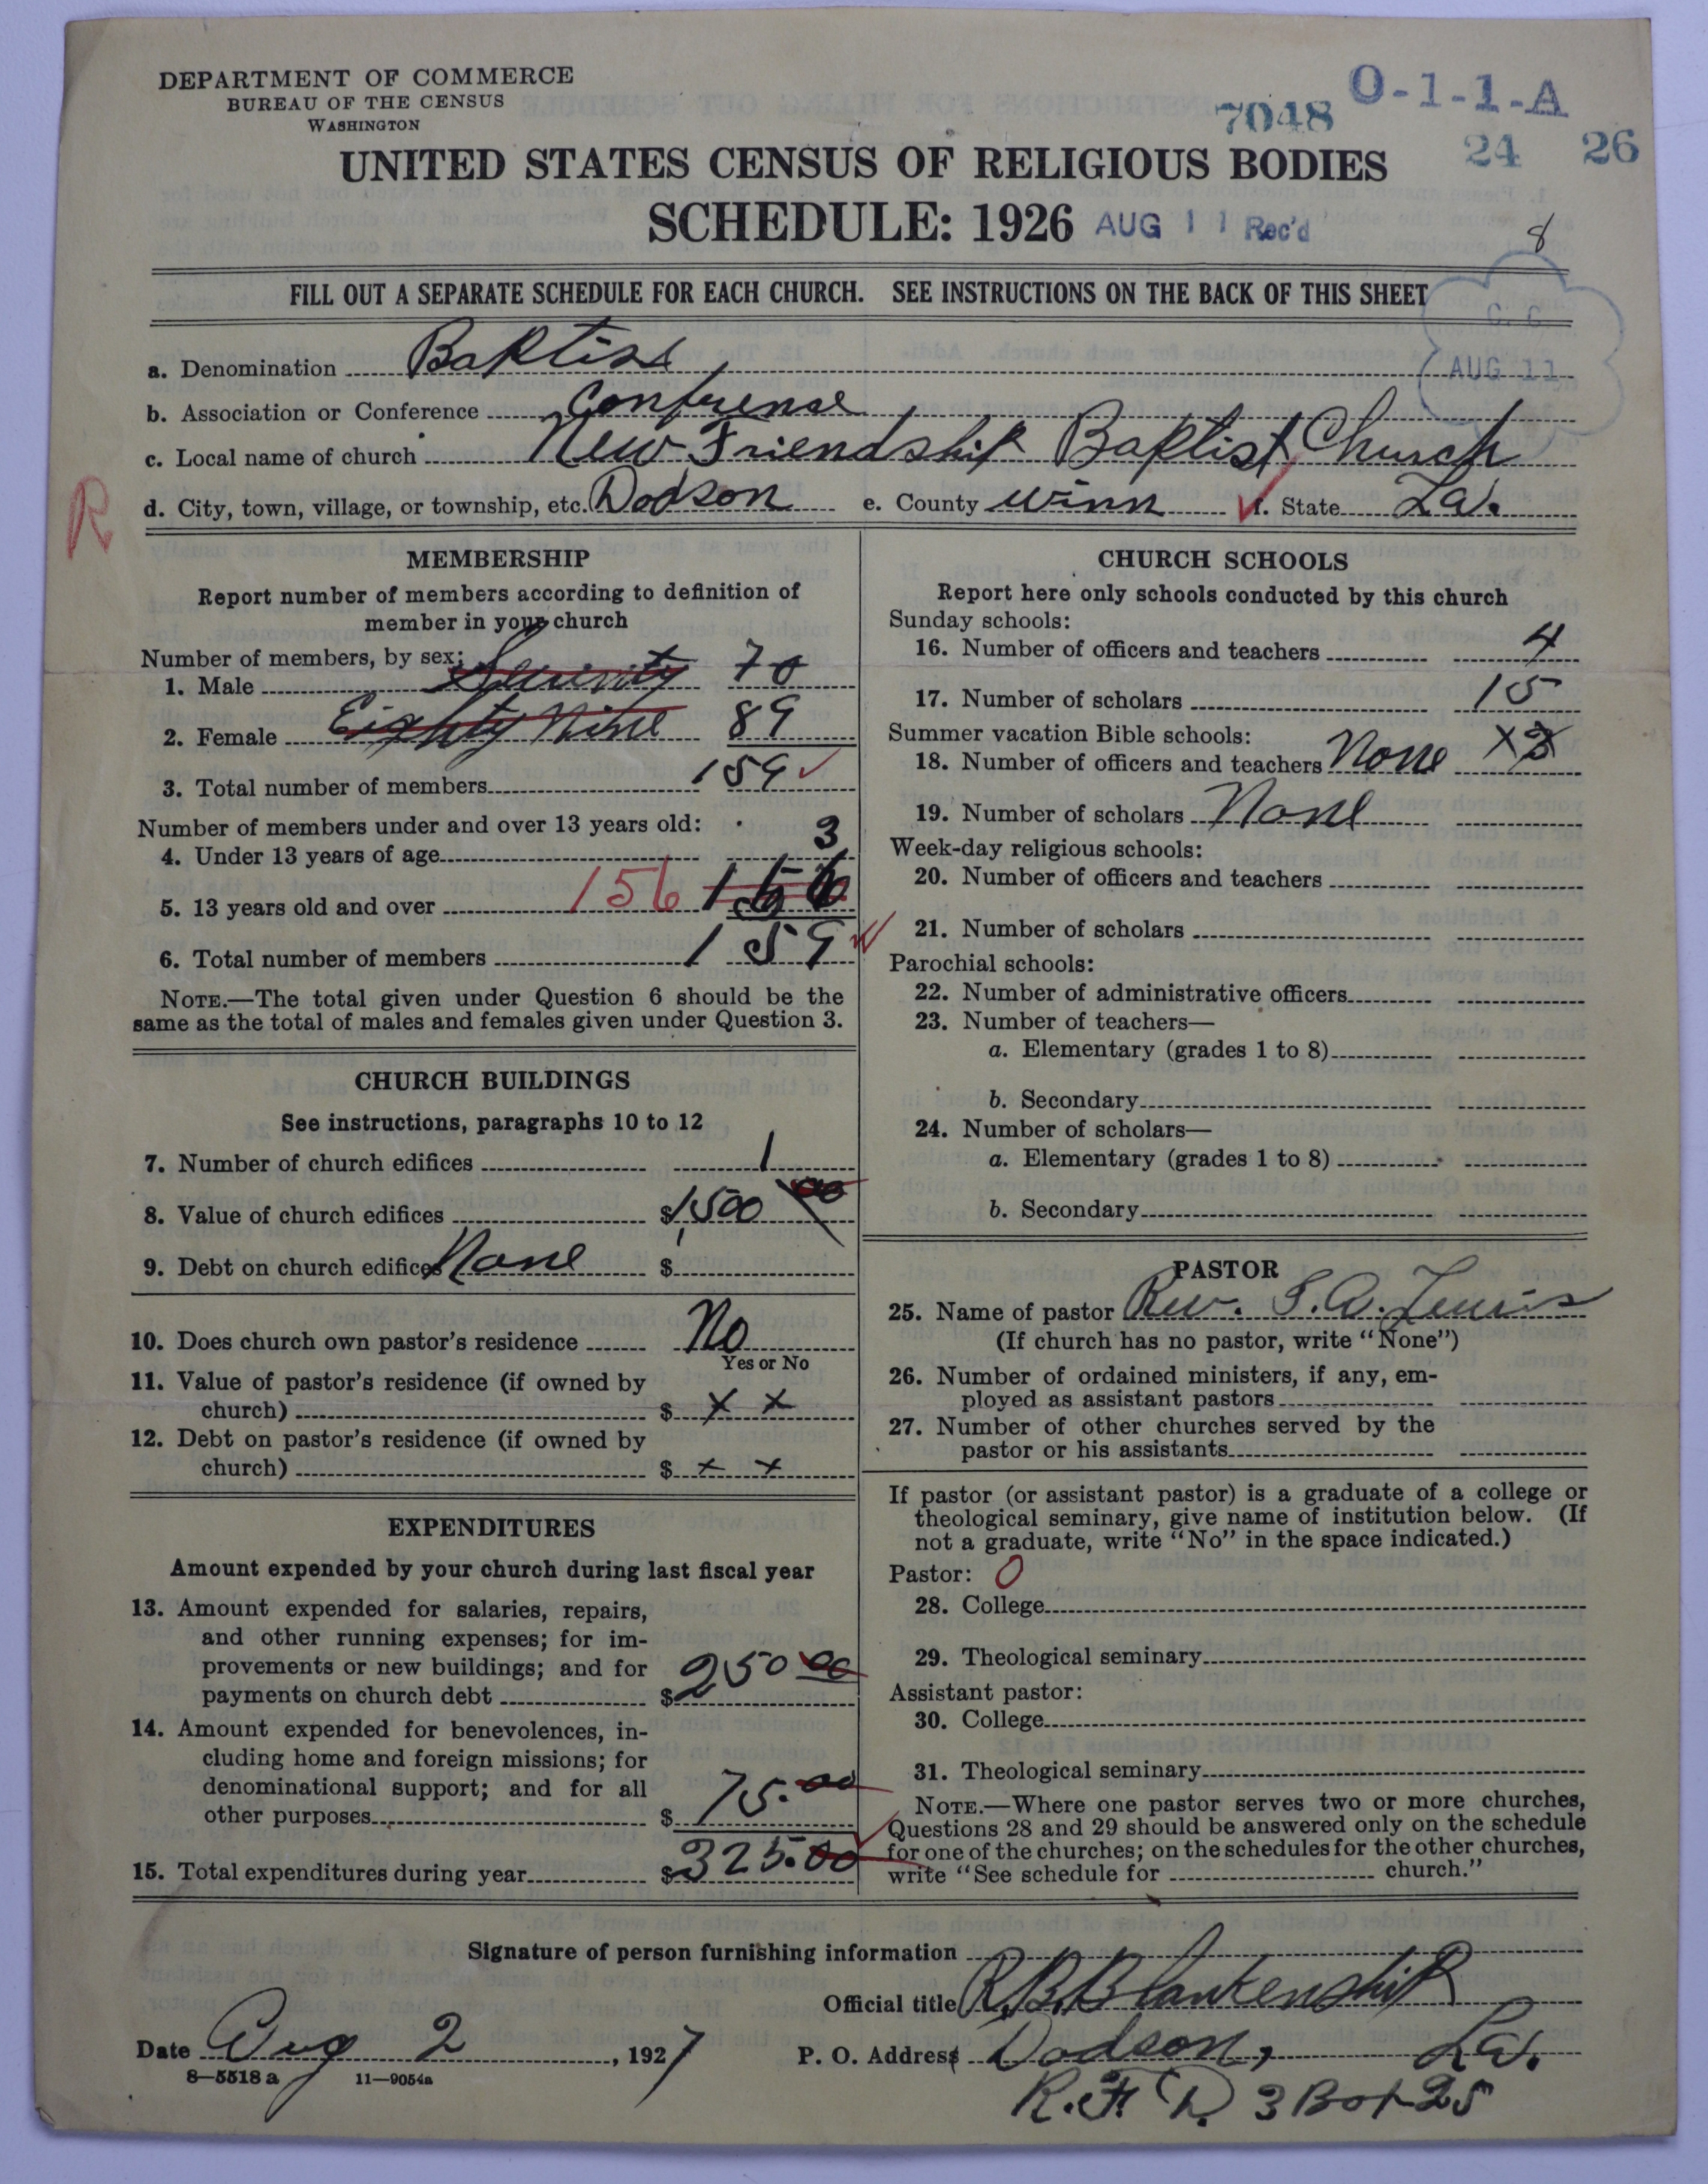 DEPARTMENT OF COMMERCE
BUREAU OF THE CENSUS
WASHINGTON
7048
O-1-1-A
24 26
UNITED STATES CENSUS OF RELIGIOUS BODIES
SCHEDULE: 1926
AUG 11 Rec'd
8
FILL OUT A SEPARATE SCHEDULE FOR EACH CHURCH. SEE INSTRUCTIONS ON THE BACK OF THIS SHEET
C. C.
AUG 11
a. Denomination Baptist
b. Association or Conference Confrense
c. Local name of church New Friendship Baptist Church
R
d. City, town, village, or township, etc. Dodson e. County Winn f. State La.
MEMBERSHIP
Report number of members according to definition of
member in your church
Number of members, by sex:
1. Male 70
2. Female Eighty Nine 89
3. Total number of members 159
Number of members under and over 13 years old:
4. Under 13 years of age 3
5. 13 years old and over 156 156
6. Total number of members 159
NOTE.—The total given under Question 6 should be the
same as the total of males and females given under Question 3.
CHURCH BUILDINGS
See instructions, paragraphs 10 to 12
7. Number of church edifices 1
8. Value of church edifices $1,500 00
9. Debt on church edifices None $
10. Does church own pastor's residence No
Yes or No
11. Value of pastor's residence (if owned by
church) $ x x
12. Debt on pastor's residence (if owned by
church) $ x x
EXPENDITURES
Amount expended by your church during last fiscal year
13. Amount expended for salaries, repairs,
and other running expenses; for im-
provements or new buildings; and for
payments on church debt $250 00
14. Amount expended for benevolences, in-
cluding home and foreign missions; for
denominational support; and for all
other purposes $75.00
15. Total expenditures during year $325.00
CHURCH SCHOOLS
Report here only schools conducted by this church
Sunday schools:
16. Number of officers and teachers 4
17. Number of scholars 15
Summer vacation Bible schools:
18. Number of officers and teachers None
19. Number of scholars None
Week-day religious schools:
20. Number of officers and teachers
21. Number of scholars
Parochial schools:
22. Number of administrative officers
23. Number of teachers—
a. Elementary (grades 1 to 8)
b. Secondary
24. Number of scholars—
a. Elementary (grades 1 to 8)
b. Secondary
PASTOR
25. Name of pastor Rev. S. A. Lewis
(If church has no pastor, write "None")
26. Number of ordained ministers, if any, em-
ployed as assistant pastors
27. Number of other churches served by the
pastor or his assistants
If pastor (or assistant pastor) is a graduate of a college or
theological seminary, give name of institution below. (If
not a graduate, write "No" in the space indicated.)
Pastor: 0
28. College
29. Theological seminary
Assistant pastor:
30. College
31. Theological seminary
NOTE.—Where one pastor serves two or more churches,
Questions 28 and 29 should be answered only on the schedule
for one of the churches; on the schedules for the other churches,
write "See schedule for church."
Signature of person furnishing information
Official title R. B. Blankenship
Date Aug 2, 1927 P. O. Address Dodson, La.
8—5518 a 11—9054a
R. F. D. 3 Box 25